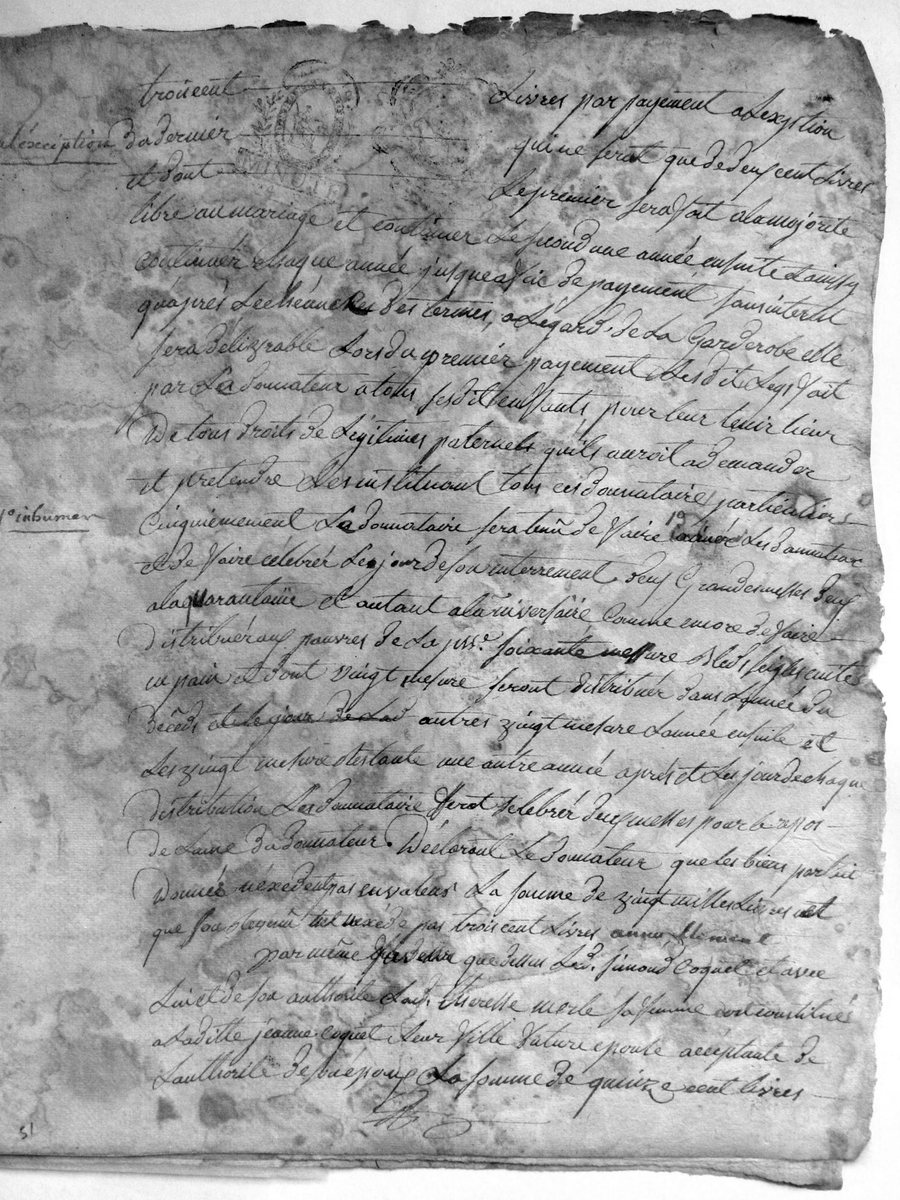 troiscent Livres par payement a Lexeption
a l'éxéiption du dernier qui ne serat que de deus cent Livres
et dont Le premier sera fait ala majorité
libre au mariage et continuer Le second une année ensuite Lainssy
continuér chaque année jusque a fin de payement sans interest
qu'apres Lechéance des termes, a Légard de La Garderobe elle
sera délivrable Lors du premiér payement Lesdit Legs fait
par Le donnateur a tous sesdit enffants pour leur tenir lieur
De tous droits de Légitimes paternels qu'ils auroit ademander
et pretendre Les instituant tous ces donnataire particuliers
Cinquiemement La donnataire sera tenû de Faire 1° Les donnateur
1° inhumer
et de Faire celebrér Le jour de son interrement deus Grandes messes deus
ala quarantaine et autant a laniversaire Comme encore de Faire
distribuér aus pauvres de La pss.e soixante messure Bled seigle cuites
en pain et dont vingt mesure seront distribuér dans Lannée du
décéds et le jour de Lad autres vingt mesure Lannée ensuite et
Les vingt mesure restante une autre année aprés et Les jour de chaque
distribution Les donnataire Ferat célébrér deus messes pour le repos
de Lame du donnateur Décleront Le donnateur que les biens parluit
Donnés néxedent pas en valeur La somme de vingt milles Livres et
que son néxede pas troiscent Livres annuellement
par même que dessus Led. Simond Coquet et avec
Luiet de son authorité Lad. théresse morle sa Femme ont constitués
a Laditte jeanne Coquet Leur Fille Future epouse acceptante de
Lauthorité de sus epoux La somme de quinze cent livres
51